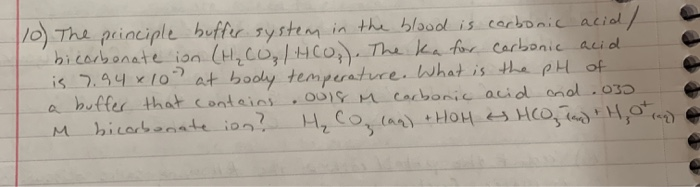 10) The principle buffer system in the blood is carbonic acid/
bicarbonate ion (H₂CO₃/HCO₃⁻). The Ka for carbonic acid
is 7.94 x 10⁻⁷ at body temperature. What is the pH of
a buffer that contains .0018 M carbonic acid and .030
M bicarbonate ion? H₂CO₃ (aq) + HOH ↔ HCO₃⁻ (aq) + H₃O⁺ (aq)